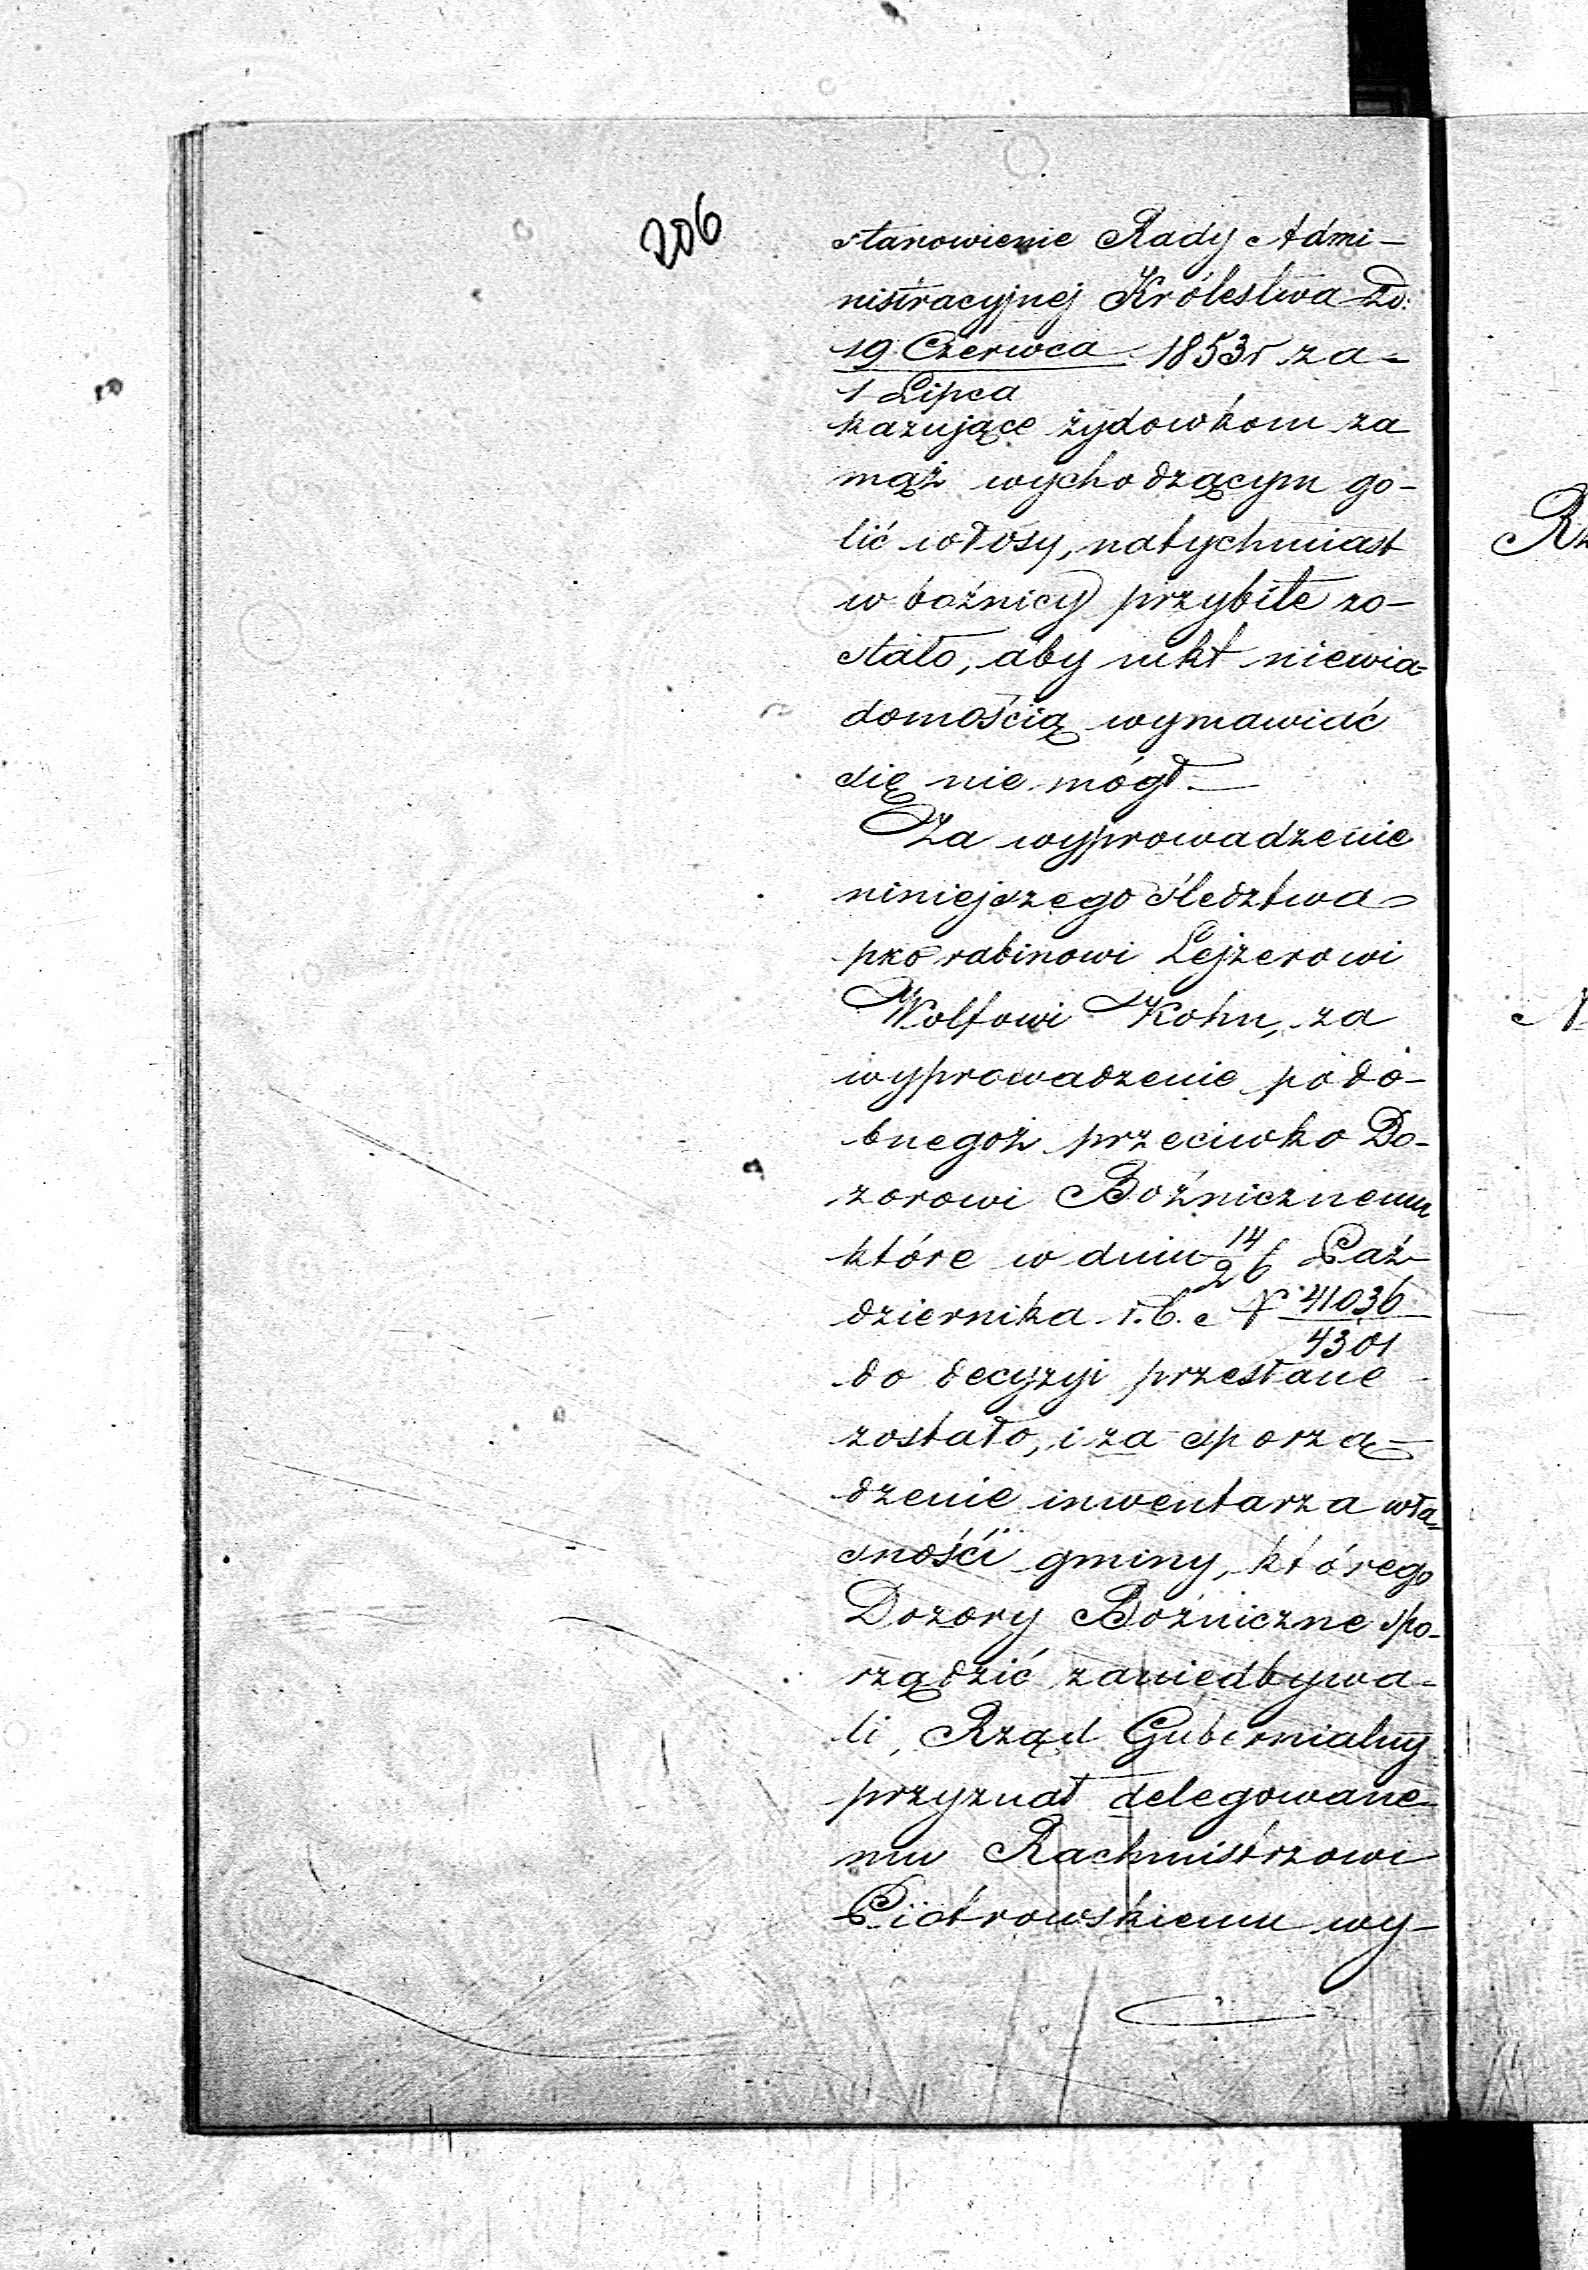 206
stanowienie Rady Admi-
nistracyjnej Królestwa zd:
19 Czerwca 1853r za-
1 Lipca
kazujące żydowkom za
mąż wychodzącym go-
lić włosy, natychmiast
w bożnicy przybite zo-
stało, aby nikt niewia-
domością wymawiać
się nie mógł.—
Za wyprowadzenie
niniejszego śledztwa
pko rabinowi Lejzerowi
Wolfowi Kohn, za
wyprowadzenie podo-
bnegoż przeciwko Do-
zorowi Bożnicznemu
które w dniu 14/26 Paź-
dziernika r.b. N 41036
4301
do decyzyi przesłane
zostało, i za sporzą-
dzenie inwentarza wła-
sności gminy, którego
Dozory Bożniczne spo-
rządzić zaniedbywa-
li, Rząd Gubernialny
przyznał delegowane-
mu Rachmistrzowi
Piotrowskiemu wy-